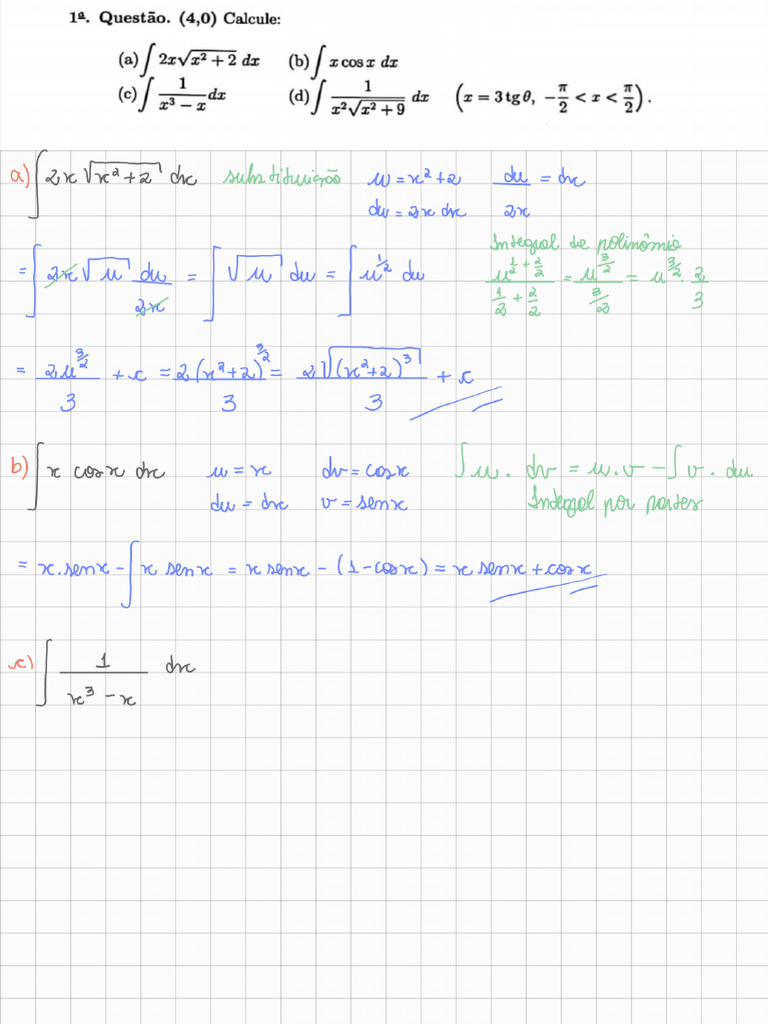 1ª. Questão. (4,0) Calcule:
(a) ∫ 2x√(x² + 2) dx (b) ∫ x cos x dx
(c) ∫ 1/(x³ − x) dx (d) ∫ 1/(x²√(x² + 9)) dx (x = 3 tg θ, −π/2 < x < π/2).
a) ∫ 2x √(x²+2) dx substituição u = x²+2 du/2x = dx
du = 2x dx
Integral de polinômio
= ∫ 2x √u du/2x = ∫ √u du = ∫ u^(1/2) du u^(1/2 + 2/2)/(1/2 + 2/2) = u^(3/2)/(3/2) = u^(3/2) · 2/3
= 2u^(3/2)/3 + c = 2(x²+2)^(3/2)/3 = 2√((x²+2)³)/3 + c
b) ∫ x cosx dx u = x dv = cosx ∫ u · dv = u.v − ∫ v · du
du = dx v = senx Integral por partes
= x.senx − ∫ x senx = x senx − (1−cosx) = x senx + cosx
c) ∫ 1/(x³ − x) dx